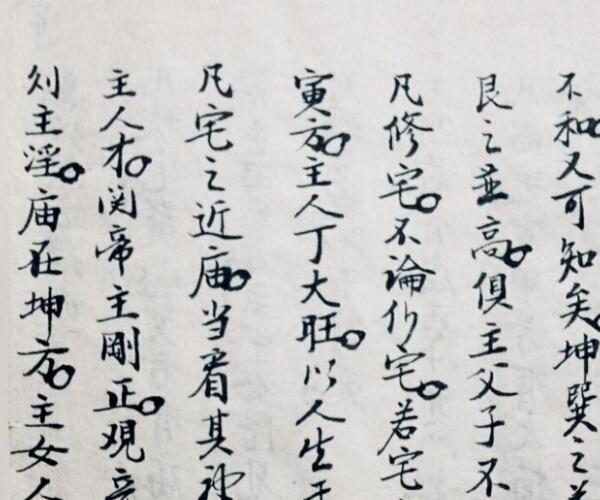 不和。又可知矣。坤巽之
艮之並高。俱主父子不
凡修宅。不論何宅。若宅
寅方。主人丁大旺。以人生于
凡宅之近庙。当看其神
主人才。関帝主剛正。観音
则主淫。庙在坤方。主女人